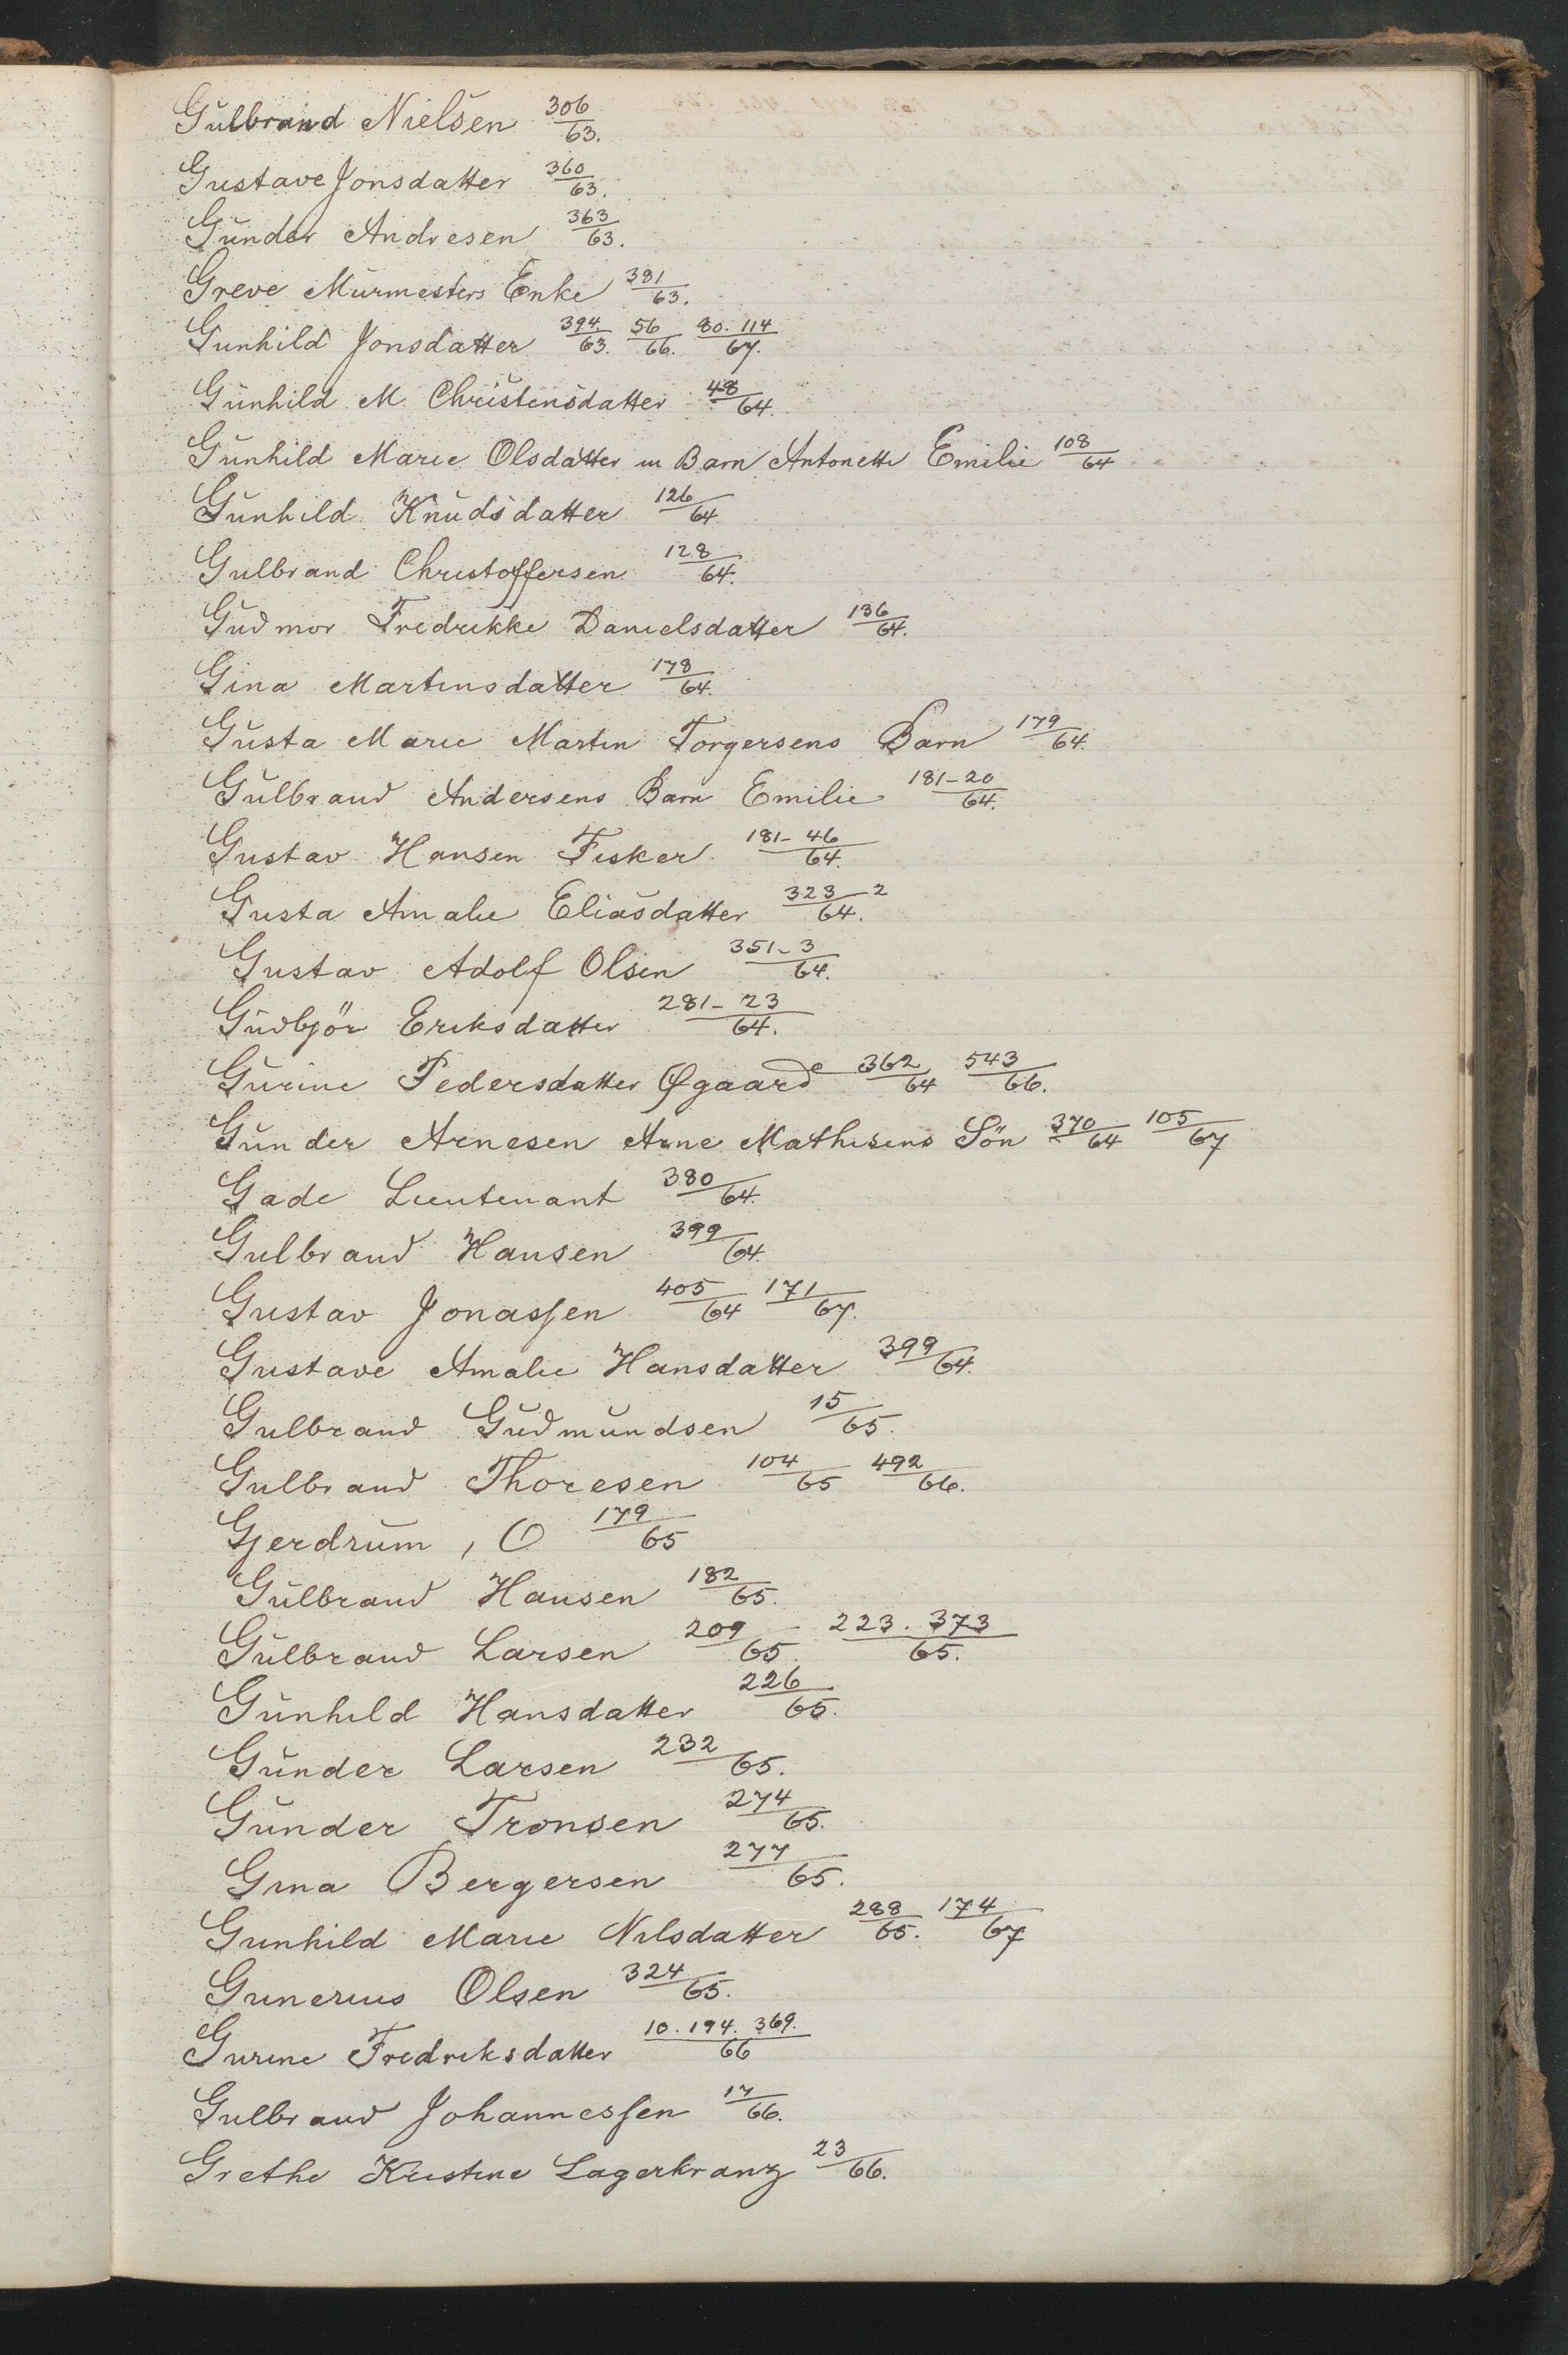 Gulbrand Nielsen 306/63.
Gustave Jonsdatter 360/63.
Gunder Andresen 363/63.
Greve Murmesters Enke 381/63.
Gunhild Jonsdatter 394./63. 56/66. 80. 114/67.
Gunhild M. Christensdatter 48/64.
Gunhild Marie Olsdatter m Barn Antonette Emilie 108/64
Gunhild Knudsdatter 126/64
Gulbrand Christoffersen 128/64.
Gudmor Fredrikke Danielsdatter 136/64.
Gina Martinsdatter 178/64.
Gusta Marie Martin Torgersens Barn 179/64.
Gulbrand Andersens Barn Emilie 181-20/64.
Gustav Hansen Fisker 181-46/64.
Gusta Amalie Eliasdatter 323-2/64.
Gustav Adolf Olsen 351-3/64.
Gudbjör Eriksdatter 281-23/64.
Gurine Pedersdatter Øgaard 362/64 543/66.
Gunder Arnesen Arne Mathisens Sön 370/64 105/67
Gade Lieutenant 380/64.
Gulbrand Hansen 399/64.
Gustav Jonassen 405/64 171/67.
Gustave Amalie Hansdatter 399/64.
Gulbrand Gudmundsen 15/65.
Gulbrand Thoresen 104/65 492/66.
Gjerdrum, O 179/65
Gulbrand Hansen 182/65.
Gulbrand Larsen 209/65. 223. 373/65.
Gunhild Hansdatter 226/65.
Gunder Larsen 232/65.
Gunder Tronsen 274/65.
Gina Bergersen 277/65.
Gunhild Marie Nilsdatter 288/65. 174/67
Gunerius Olsen 324/65.
Gurine Fredriksdatter 10. 194. 369./66
Gulbrand Johannessen 17/66.
Grethe Kristine Lagerkranz 23/66.